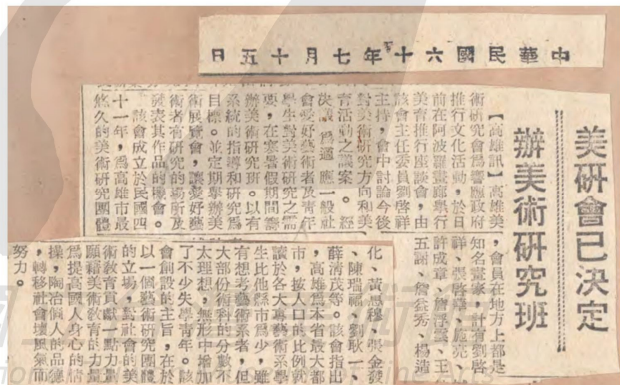 中華民國六十年七月十五日
美研會已決定
辦美術研究班
【高雄訊】高雄美
術研究會為響應政府
推行文化活動，於日
前在阿波羅畫廊舉行
美育推行座談會，由
該會主任委員劉啓祥
主持，會中討論今後
對美術研究方向和美
育活動之議案。經
決議為適應一般社
會愛好藝術者及青年
學生對美術研究之需
要，在寒暑假期間籌
辦美術研究班。以有
系統的指導和研究為
目標。並定期舉辦美
術展覽會，讓愛好藝
術者有研究的場所及
發表其作品的機會。
該會成立於民國四
十一年，為高雄市最
悠久的美術研究團體
，會員在地方上都是
知名畫家，計有劉啓
祥、張啓華、施亮、
許成章、詹浮雲、王
五謝、詹益秀、楊造
化、黃惠穆、張金發
、陳瑞福、劉耿一、
薛清茂等。該會指出
，高雄為本省最大都
市，按人口的比例就
讀於各大專藝術系學
生比他縣市為少，雖
有想考藝術系者，但
大部份術科的分數不
太理想，無形中增加
了不少失學青年。該
會創設的主旨，在於
以一個藝術研究團體
的立場，對社會的美
術教育貢獻一點力量
願藉美術教育的力量
為提高國人身心的情
操，陶冶個人的品德
，轉移社會壞風氣而
努力。